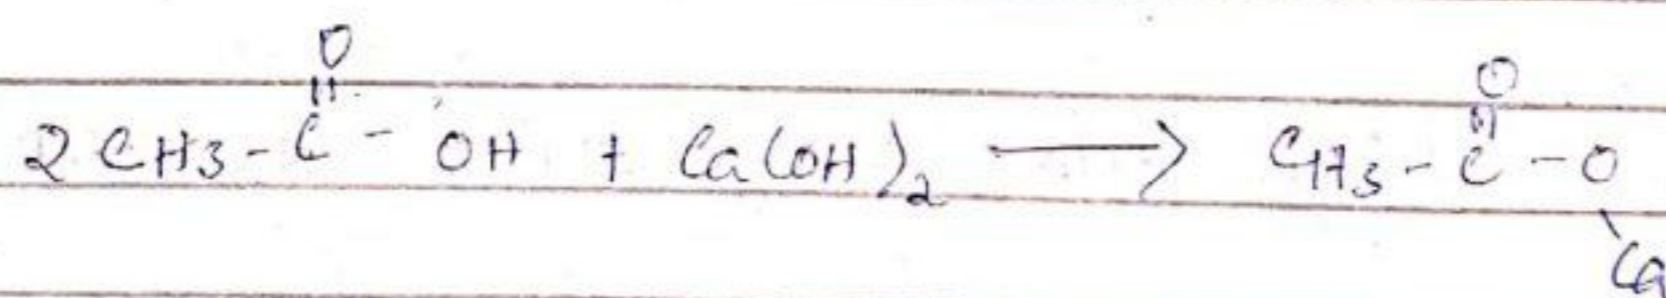 O O
|| ||
2CH3-C-OH + Ca(OH)2 ⟶ CH3-C-O
\
Ca